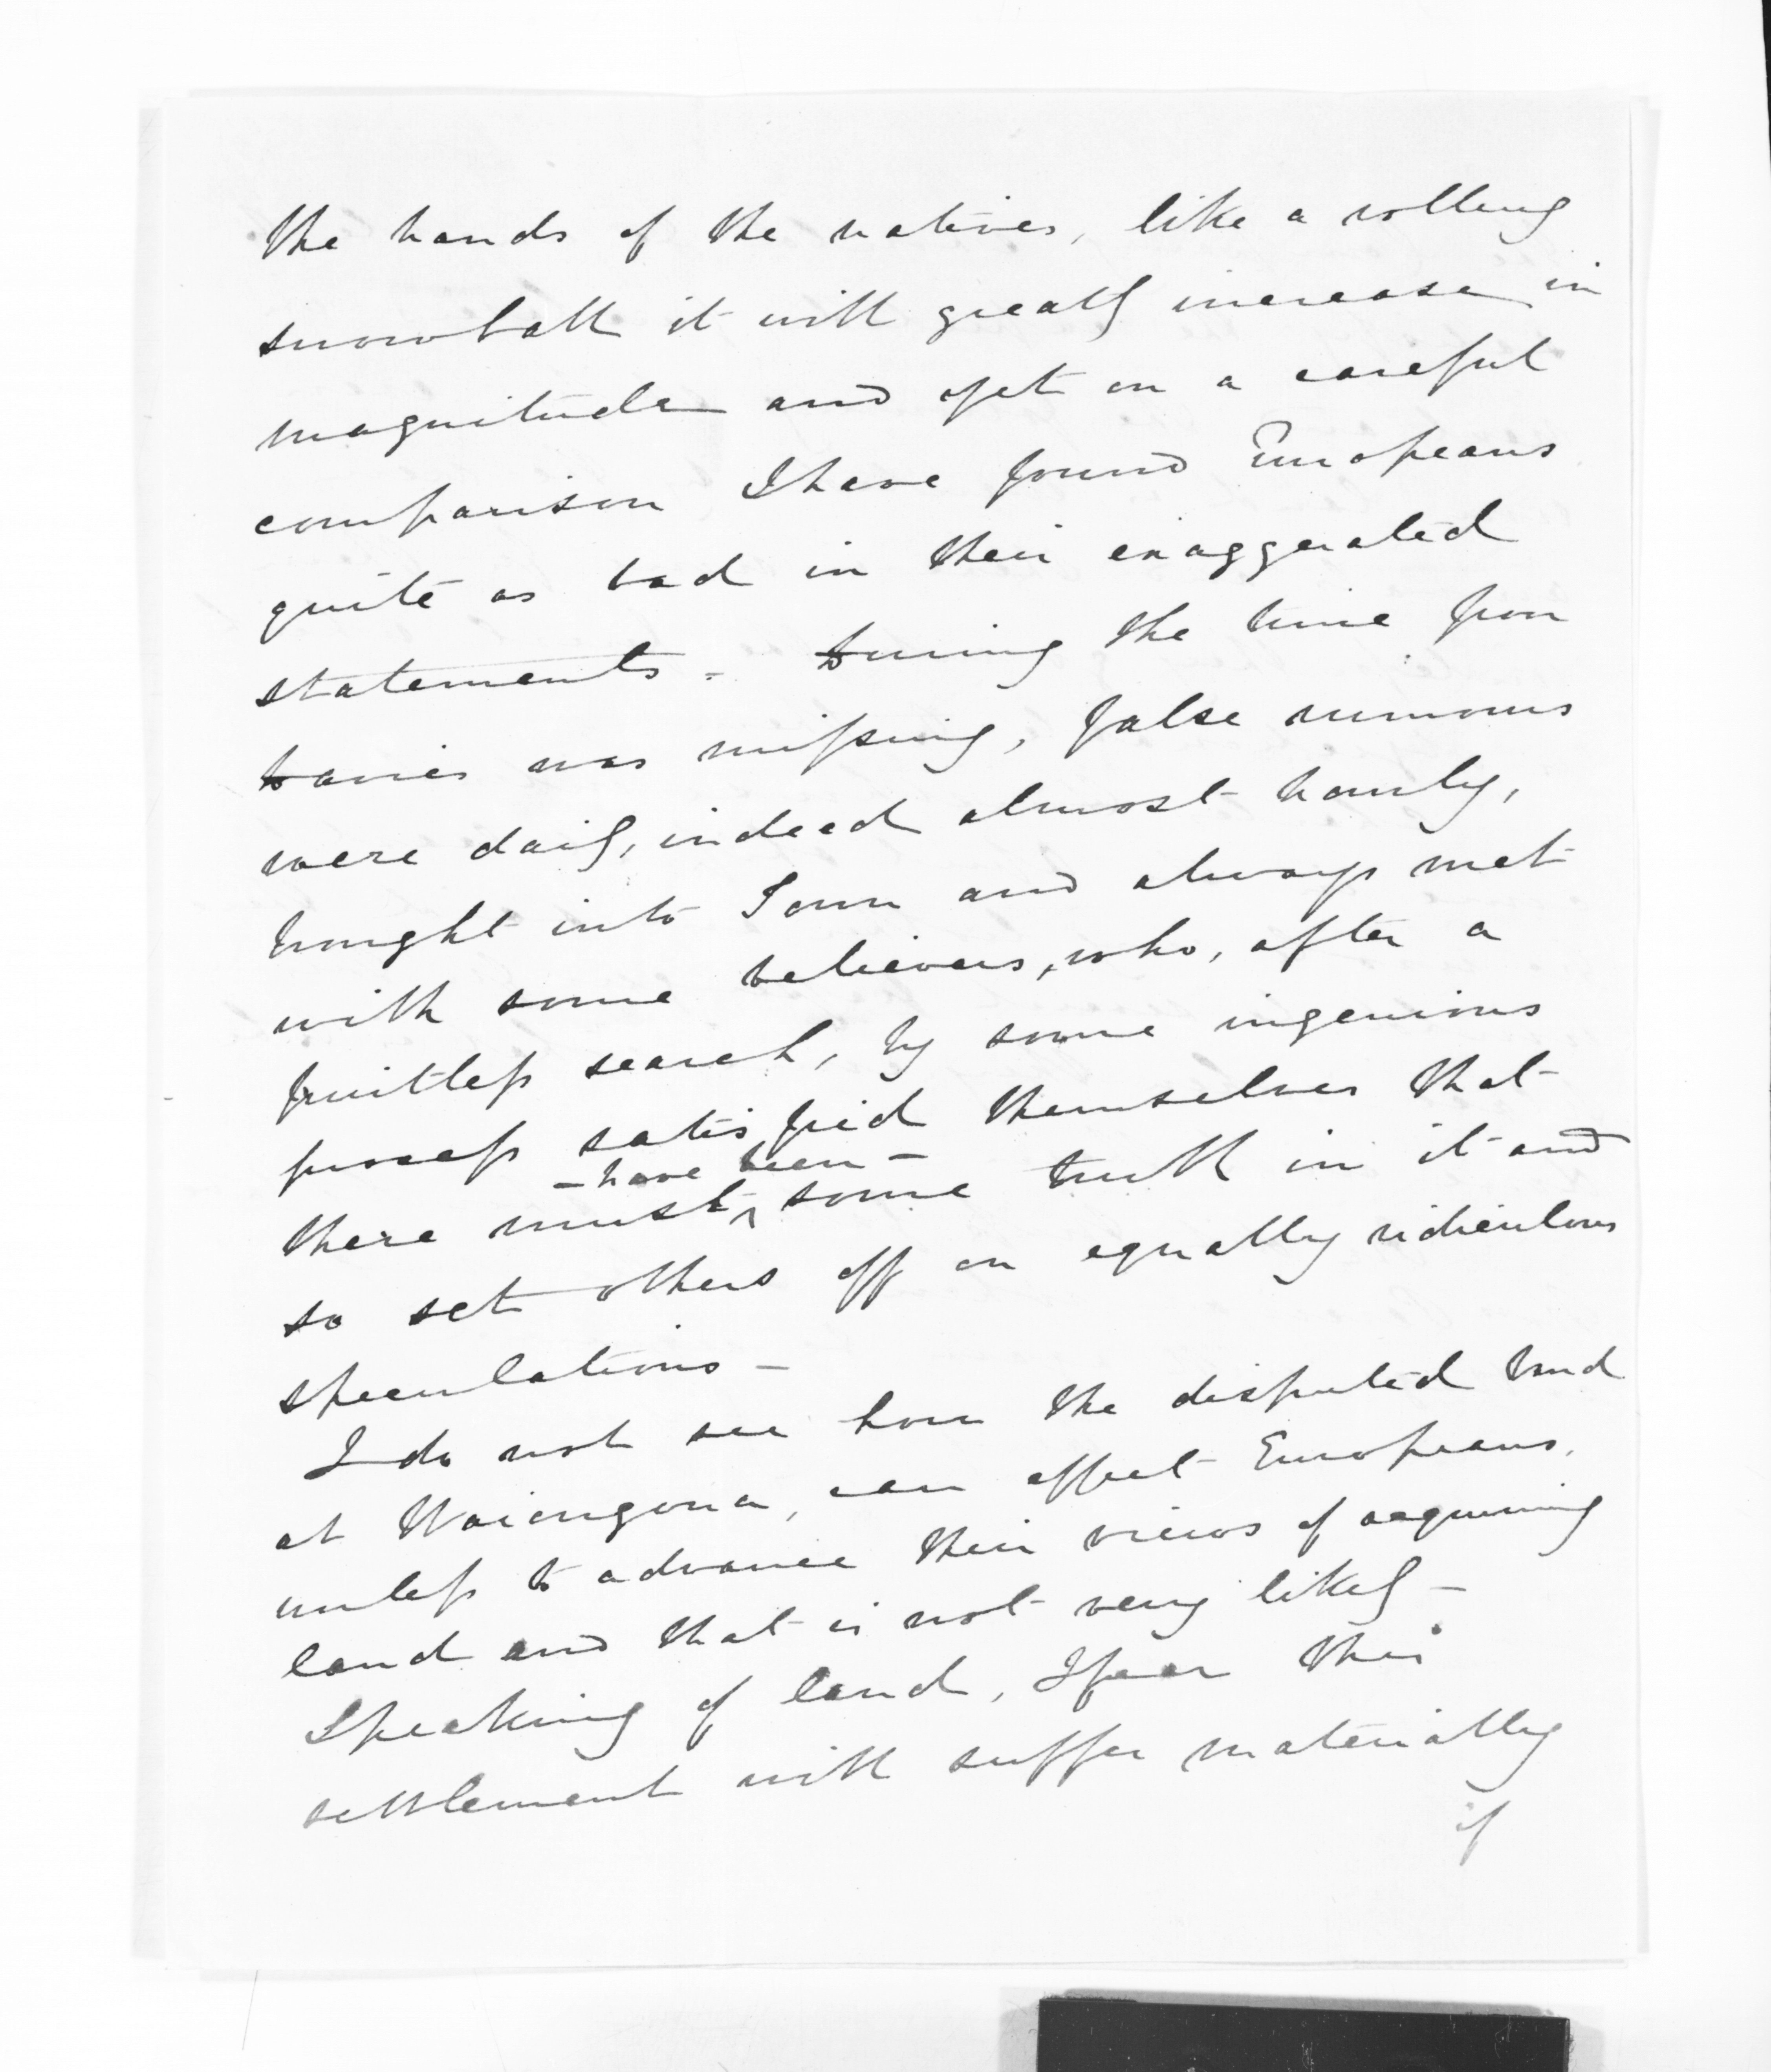 the hands of the natives, like a rolling
snowball it will greatly increase in
magnitude and yet on a careful
comparison I have found Europeans
quite as bad in their exaggerated
statements - During the time poor
Davies was missing, false rumours
were daily, indeed almost hourly,
brought into Town and always met
with some believers, who, after a
fruitless search, by some ingenious
process satisfied themselves that
- have been -
there must ^ some truth in it and
so set others off on equally ridiculous
speculations -
I do not see how the disputed land
at Waiongona, can affect Europeans,
unless to advance their views of acquiring
land and that is not very likely -
Speaking of land, I fear this
settlement will suffer materially
if